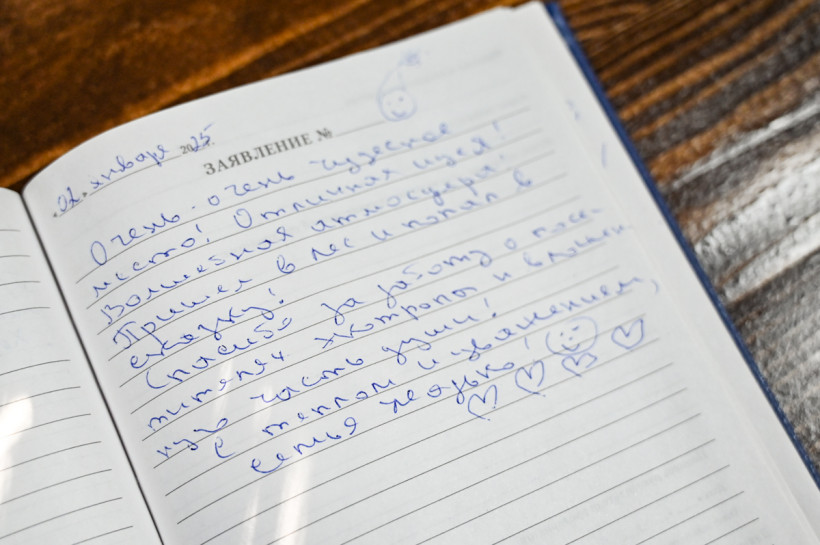 02. января 2025 г.
ЗАЯВЛЕНИЕ №
Очень-очень чудесное
место! Отличная идея!
Волшебная атмосфера.
Пришел в лес и попал в
сказку!
Спасибо за работу о посе-
тителях и вложен-
ную часть души!
С теплом и уважением,
семья